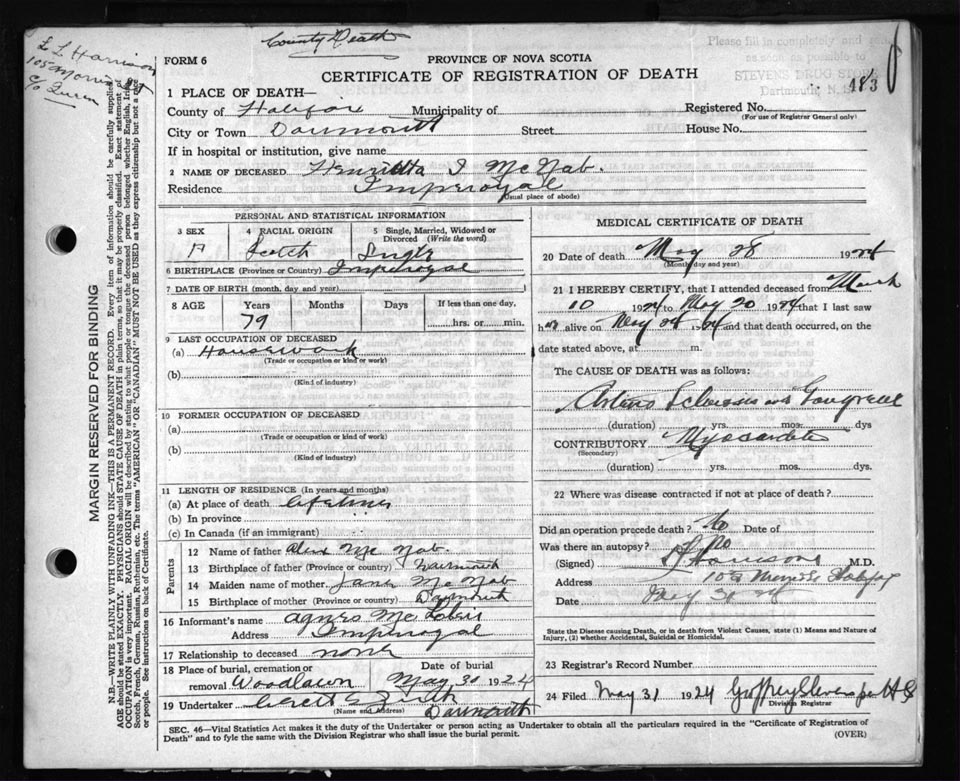 County Death
L L Harrison
105 Morris
c/o Queen
FORM 6
PROVINCE OF NOVA SCOTIA
CERTIFICATE OF REGISTRATION OF DEATH
Please fill in completely and
as soon as possible to
STEVENS DRUG STORE
Dartmouth, N.S.
483
1 PLACE OF DEATH—
County of Halifax Municipality of
Registered No.
(For use of Registrar General only)
City or Town Darmouth Street House No.
If in hospital or institution, give name
2 NAME OF DECEASED Henrietta I McNab.
Residence Imperoyal
(Usual place of abode)
PERSONAL AND STATISTICAL INFORMATION
3 SEX F
4 RACIAL ORIGIN Scotch
5 Single, Married, Widowed or Divorced (Write the word) Single
6 BIRTHPLACE (Province or Country) Imperoyal
7 DATE OF BIRTH (month, day, and year)
8 AGE Years Months Days If less than one day,
79 hrs. or min.
9 LAST OCCUPATION OF DECEASED
(a) Housework
(Trade or occupation or kind of work)
(b)
(Kind of industry)
10 FORMER OCCUPATION OF DECEASED
(a)
(Trade or occupation or kind of work)
(b)
(Kind of industry)
11 LENGTH OF RESIDENCE (In years and months)
(a) At place of death lifetime
(b) In province
(c) In Canada (if an immigrant)
Parents
12 Name of father Alex Mc Nab.
13 Birthplace of father (Province or country) Darmouth
14 Maiden name of mother Jane Mc Nab
15 Birthplace of mother (Province or country) Darmouth
16 Informant's name Agnes Mc
Address Imperoyal
17 Relationship to deceased none
18 Place of burial, cremation or removal Woodlawn
Date of burial May 31 1924
19 Undertaker
(Name and Address) Darmouth
MEDICAL CERTIFICATE OF DEATH
20 Date of death May 28 1924
(Month, day and year)
21 I HEREBY CERTIFY, that I attended deceased from March
10 1924 to May 20 1924 that I last saw
h alive on May 1924 and that death occurred, on
date stated above, at m.
The CAUSE OF DEATH was as follows:
Arterio Sclerosis and Gangrene
(duration) yrs. mos. dys
CONTRIBUTORY Myocarditis
(Secondary)
(duration) yrs. mos. dys.
22 Where was disease contracted if not at place of death?
Did an operation precede death? No Date of
Was there an autopsy? No
(Signed) Harrison M.D.
Address 105 Morris St Halifax
Date May 31 24
State the Disease causing Death, or in death from Violent Causes, state (1) Means and Nature of
Injury, (2) whether Accidental, Suicidal or Homicidal.
23 Registrar's Record Number
24 Filed May 31 1924 Geoffrey Stevens
Division Registrar
SEC. 46—Vital Statistics Act makes it the duty of the Undertaker or person acting as Undertaker to obtain all the particulars required in the "Certificate of Registration of
Death" and to fyle the same with the Division Registrar who shall issue the burial permit.
(OVER)
MARGIN RESERVED FOR BINDING
N.B.—WRITE PLAINLY WITH UNFADING INK—THIS IS A PERMANENT RECORD. Every item of information should be carefully supplied.
AGE should be stated EXACTLY. PHYSICIANS should STATE CAUSE OF DEATH in plain terms, so that it may be properly classified. Exact statement of
OCCUPATION is very important. RACIAL ORIGIN will be described by stating to what people or tongue the deceased person belonged whether English, Irish,
Scotch, French, German, Russian, Ruthenian, etc. The terms "AMERICAN" OR "CANADIAN" MUST NOT BE USED as they express citizenship but not a race
or people. See instructions on back of Certificate.